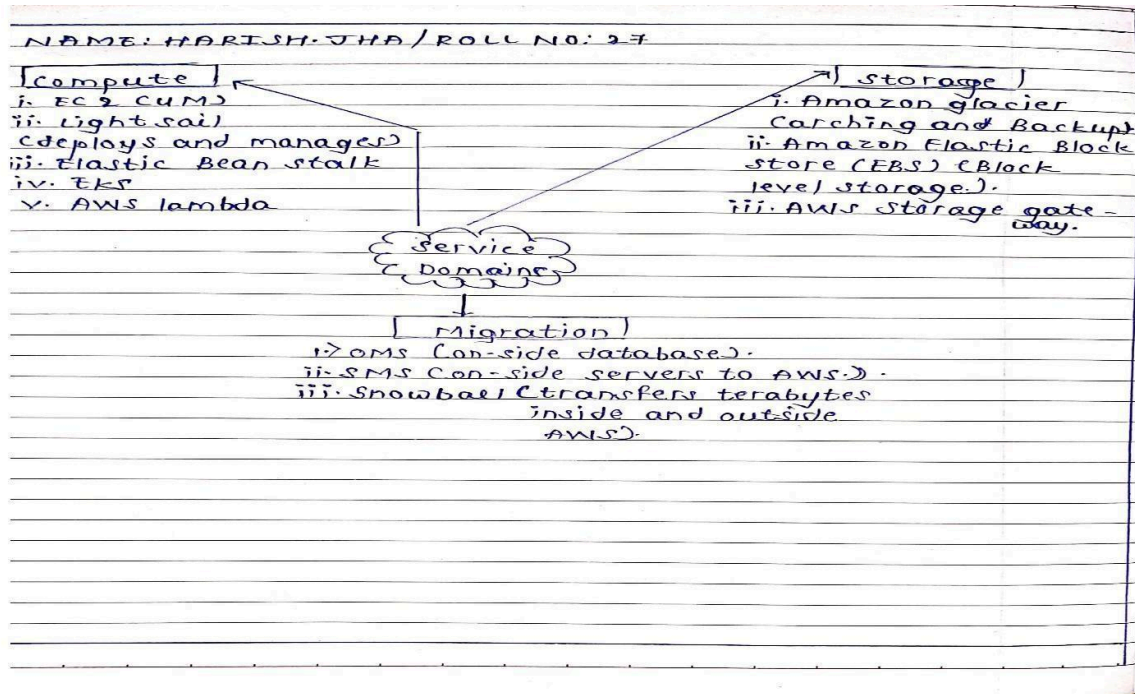 NAME: HARISH. JHA / ROLL NO: 27
Compute
i. EC2 (VM)
ii. Lightsail
(deploys and manages)
iii. Elastic Bean stalk
iv. EKS
v. AWS lambda
Storage
i. Amazon glacier
(arching and Backup)
ii. Amazon Elastic Block
store (EBS) (Block
level storage.).
iii. AWS Storage gate-
way.
Service
Domains
Migration
i.> DMS (on-side database).
ii. SMS (on-side servers to AWS.).
iii. Snowball (transfers terabytes
inside and outside
AWS).